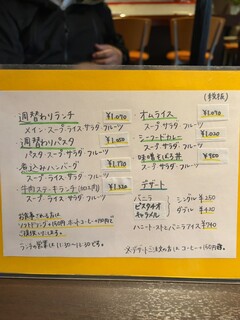 (税抜)
週替わりランチ ¥1,090
メイン・スープ・ライス・サラダ・フルーツ
週替わりパスタ ¥1,050
パスタ・スープ・サラダ・フルーツ
煮込みハンバーグ ¥1,190
スープ・ライス・サラダ・フルーツ
牛肉ステーキランチ
スープ・ライス・サラダ・フルーツ
お食事される方は
ソフトドリンク+150円、ホットコーヒー+150円で
ご提供いたします。
ランチの営業は 11:30~13:30です。
オムライス ¥1,090
スープ・サラダ・フルーツ
シーフードカレー
スープ・サラダ・フルーツ
味噌そぼろ丼 ¥900
スープ・サラダ・フルーツ
デザート
バニラ シングル ¥250
ピスタチオ ダブル
キャラメル
ハニートーストとバニラアイス ¥740
コーヒー +150円